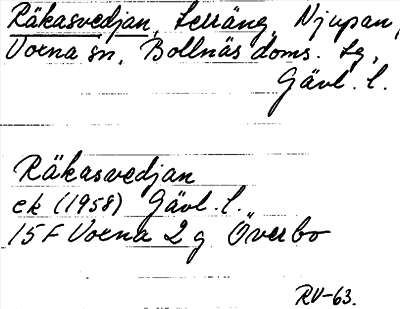 Räkasvedjan, Terräng Njupan,
Voxna sn, Bollnäs doms. sg,
Gävl. l.
Räkasvedjan
ek (1958) Gävl. l.
15F Voxna 2 g Överbo
RV-63.